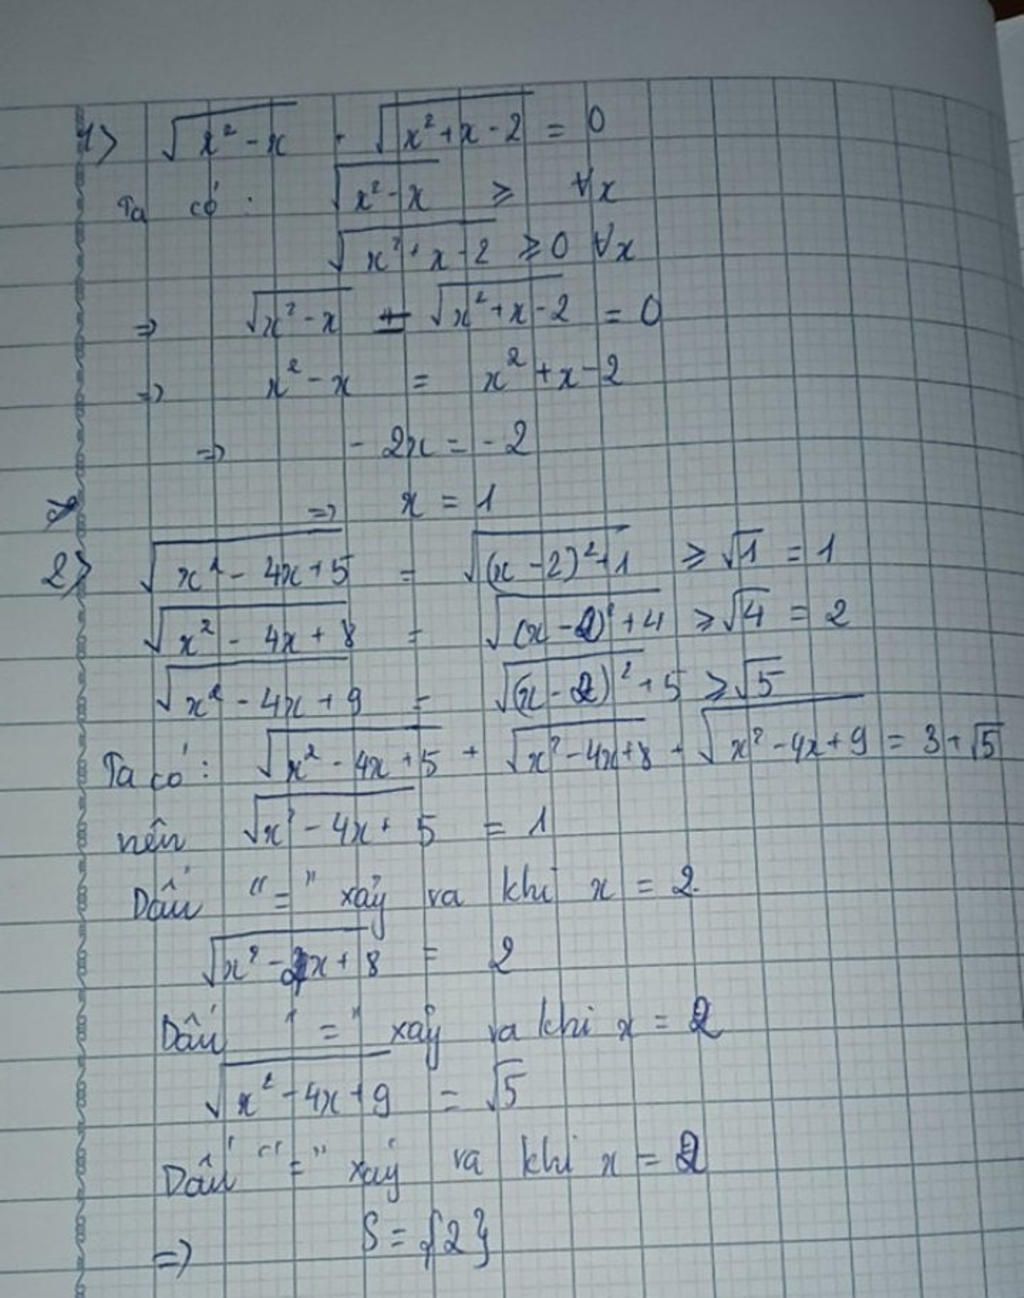 1> √(x² - x) + √(x² + x - 2) = 0
Ta có: √(x² - x) ≥ ∀x
√(x² + x - 2) ≥ 0 ∀x
=> √(x² - x) √(x² + x - 2) = 0
=> x² - x = x² + x - 2
=> - 2x = - 2
=> x = 1
2> √(x² - 4x + 5) = √((x - 2)² + 1) ≥ √1 = 1
√(x² - 4x + 8) = √((x - 2)² + 4) ≥ √4 = 2
√(x² - 4x + 9) = √((x - 2)² + 5) ≥ √5
Ta có: √(x² - 4x + 5) + √(x² - 4x + 8) + √(x² - 4x + 9) = 3 + √5
nên √(x² - 4x + 5) = 1
Dấu "=" xảy ra khi x = 2
√(x² - 4x + 8) = 2
Dấu "=" xảy ra khi x = 2
√(x² - 4x + 9) = √5
Dấu "=" xảy ra khi x = 2
=> S = {2}